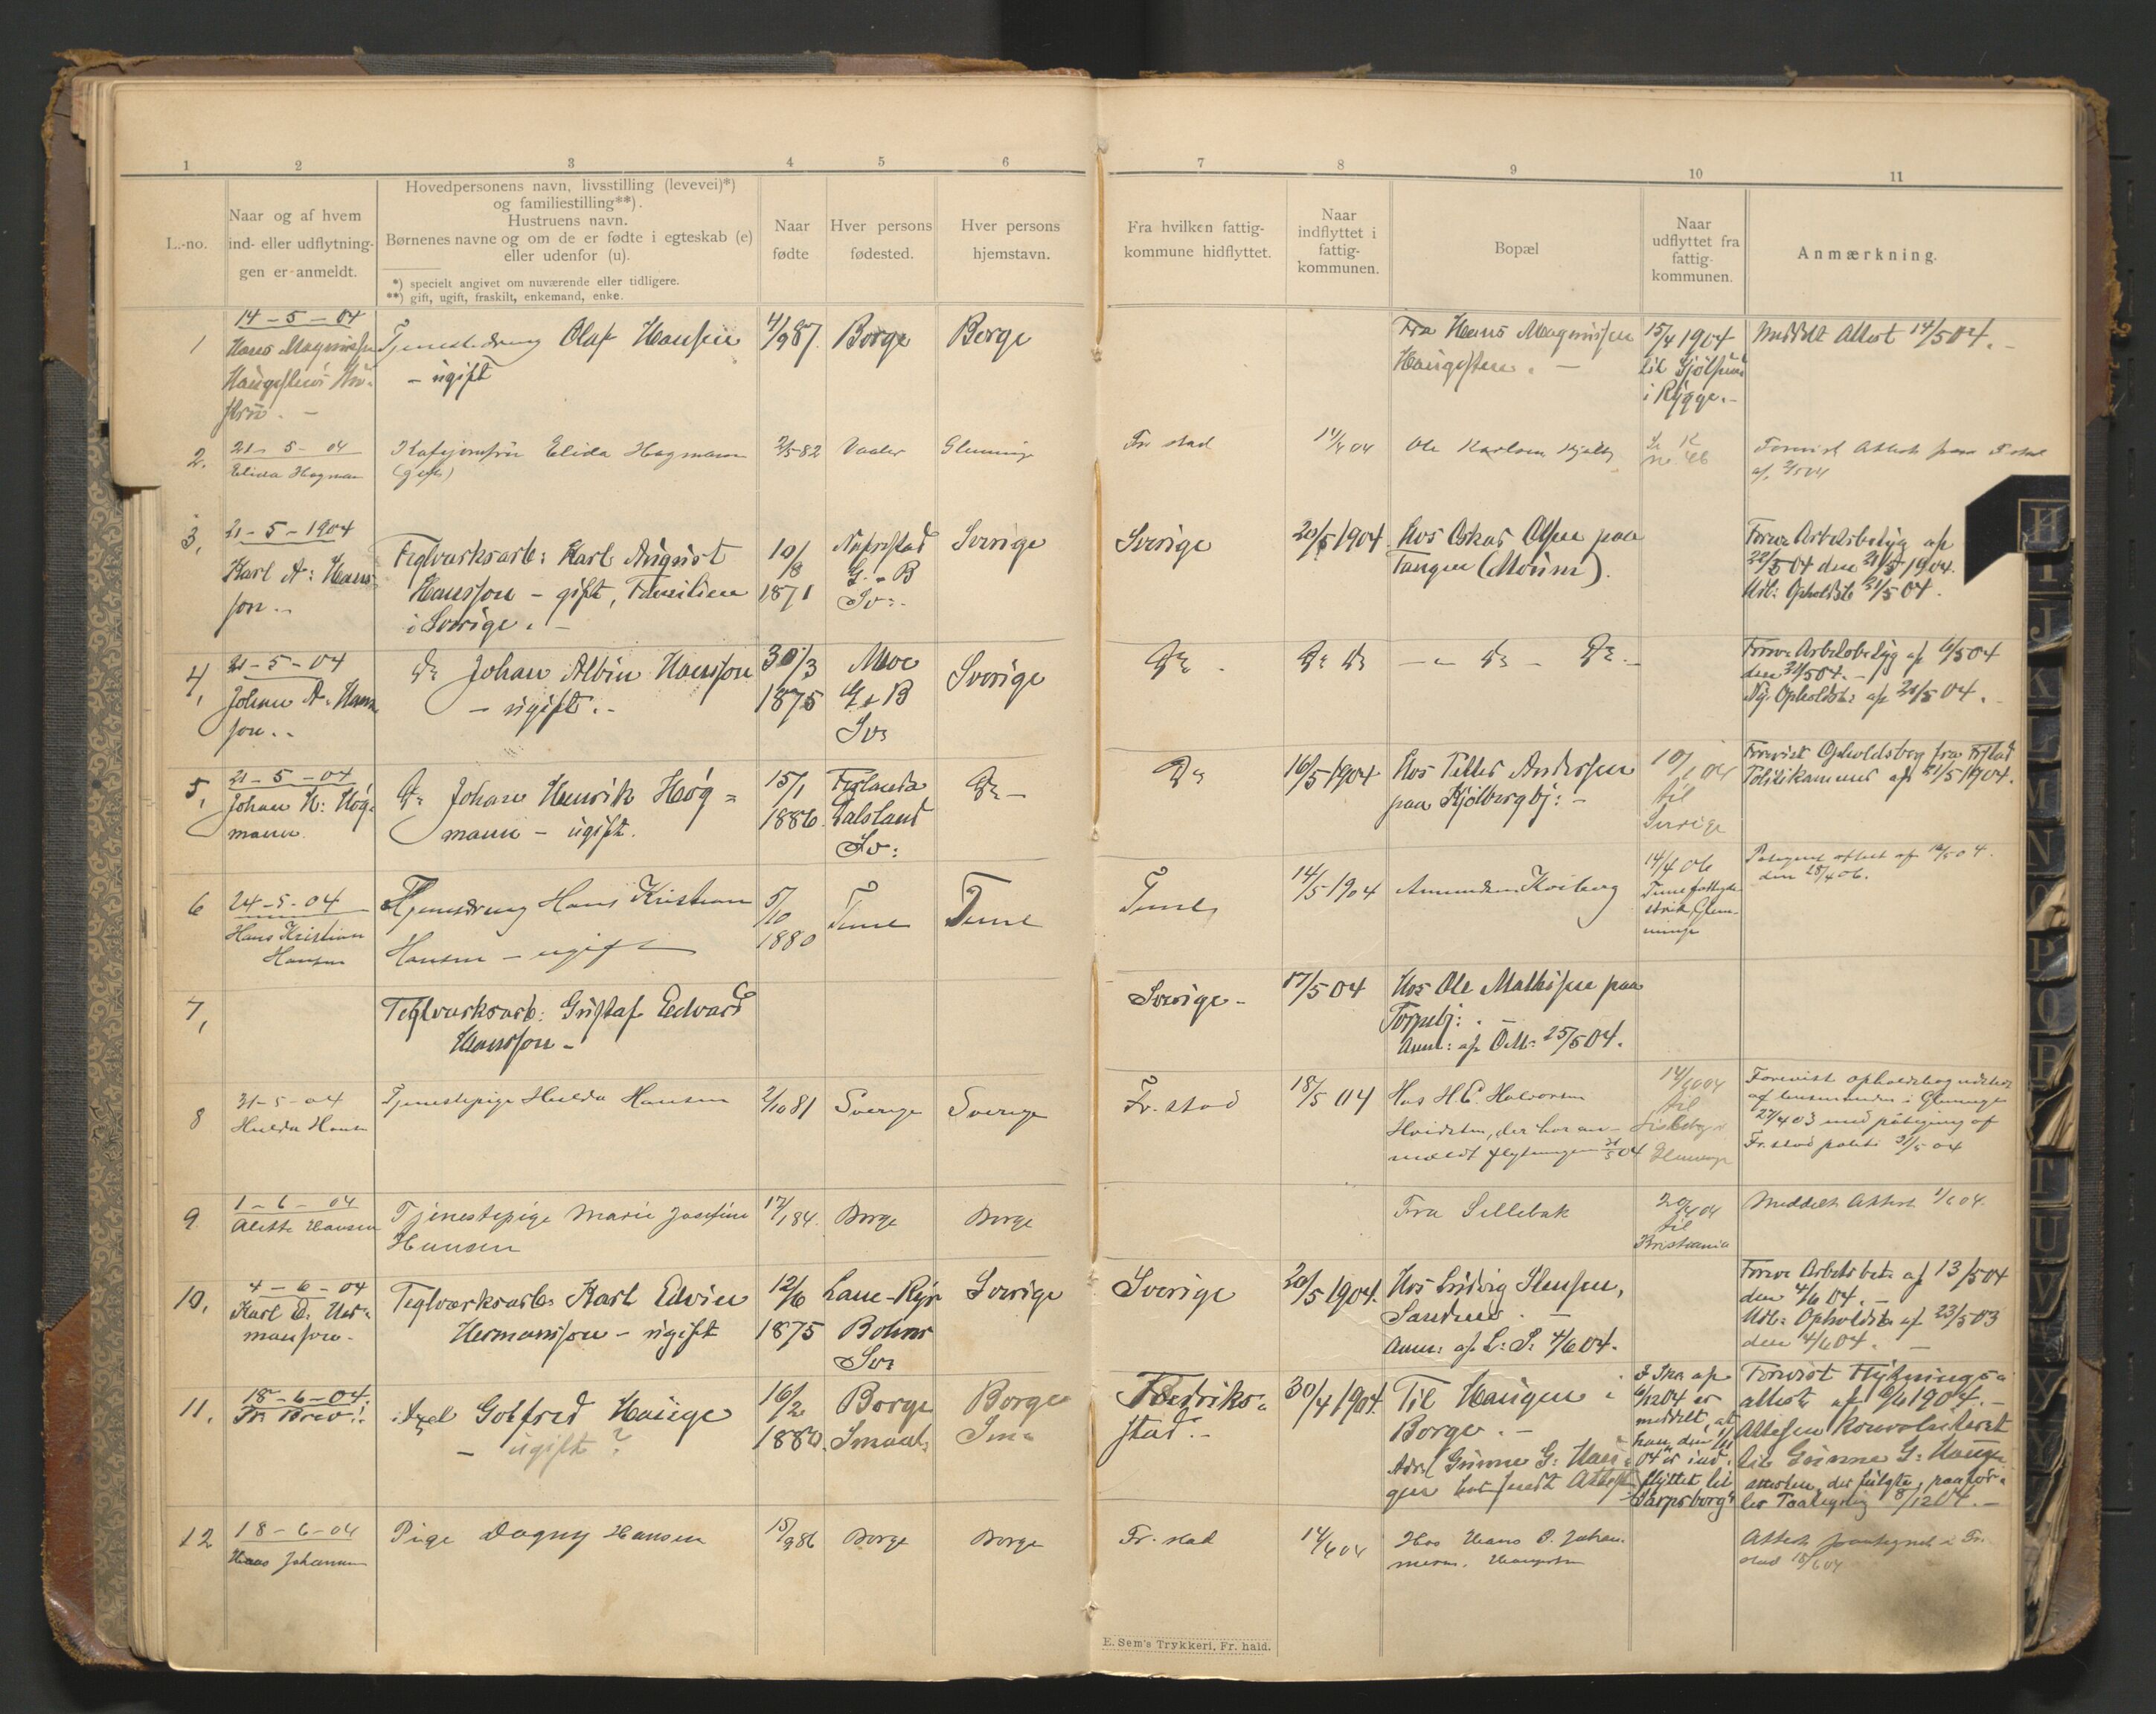 1 2 3 4 5 6 7 8 9 10 11
L.-no.
Naar og af hvem
ind- eller udflytnin-
gen er anmeldt.
Hovedpersonens navn, livsstilling (levevei)*)
og familiestilling**).
Hustruens navn.
Børnenes navne og om de er fødte i egteskab (e)
eller udenfor (u).
*) specielt angivet om nuværende eller tidligere.
**) gift, ugift, fraskilt, enkemand, enke.
Naar
fødte
Hver persons
fødested.
Hver persons
hjemstavn.
Fra hvilken fattig-
kommune hidflyttet.
Naar
indflyttet i
fattig-
kommunen.
Bopæl
Naar
udflyttet fra
fattig-
kommunen.
Anmærkning.
1
14-5-04
Hans Magnussen
Haugestens
Tjenestedreng Olaf Hansen
- ugift
4/9 87.
Borge
Borge
Fra Hans Magnussen
Haugesten. -
15/4 1904
til
i Rygge. -
Meddelt Attest 14/5 04. -
2.
21-5-04
Elida Hagman
Elida Hagmann
2/5-82
Vaaler
Glemminge
Fr stad
14/4 04
Ole Karlsen
Forevist Attest fra F.stad
af 2/5 04
3,
21-5-1904
Karl A: Hans-
son..
Teglværksarb: Karl August
Hansson - gift, Familien
i Sverige. -
10/8
1871
G. - B
Sv:.
Sverige
Sverige
20/5 1904
Hos Oskar Olsen paa
Tangen (Moum).
Forev Arbeidsbetyg af
22/5 04 den 21/5 1904.
Udl: Opholdsb 21/5 04.
4,
21-5-04
Johan A. Hans-
son..
Do Johan Albin Hansson
- ugift. -
30/3
1875
Moe
G & B
Sv:
Sverige
Do -
Do Do
- " Do - Do -
Forev Arbeidsbetyg af 6/5 04
den 21/5 04. -
Ny. Opholdsb: af 21/5 04. -
5,
21-5-04
Johan H: Hög-
mann.
Do Johan Henrik Hög=
mann - ugift.
15/1
1886.
Dalsland
Sv:
Do -
Do
16/5 1904
Hos Petter Andersen
paa Kjølbergbj: -
10/1 04
til
Sverige
Forevist Opholdsbog fra Frstad
Politikammer af 21/5 1904.
6
24-5-04
Hans Kristian
Hansen
Tjenesdreng Hans Kristian
Hansen - ugift
5/10
1880
Tune
Tune
Tune
14/5 1904
Amundsen Kviberg
14/4 06
Tune
Glem-
minge
attest af 14/5 04.
den 28/4 06.
7,
Teglværksarb: Gustaf Edvard
Hansson -
Sverige -
17/5 04
Hos Ole Mathisen paa
Torpebj: . -
Anm: af O.M: 25/5 04.
8
31-5-04
Hulda Hansen
Tjenestepige Hulda Hansen
2/10 81
Sverige
Sverige
Fr. stad
18/5 04
Hos H.C. Halvorsen
Hvidsten, der har an-
meldt flytningen 31/5 04
til
Glemminge
Forevist opholdsbog udstedt
af lensmanden i Glemminge
27/4 03 med påtegning af
Fr.stad politi 31/5 04
9
1-6-04
Alette Hansen
Tjenestepige Marie Josefine
Hansen
17/1 84.
Borge
Borge
Fra Sellebak
til
Kristiania
Meddelt Attest 1/6 04.
10.
4-6-04
Karl E. Her-
mansson.
Teglværksarb: Karl Edvin
Hermansson - ugift
12/6
1875
Lane-Ryr
Bohus
Sv:
Sverige
Sverige
20/5 1904.
Hos Ludvig Stensen,
Sandnes . -
Anm: af L: S: 4/6 04.
Forev Arbeidsbet: af 13/5 04
den 4/6 04. -
Udl: Opholdsb af 23/5 03
den 4/6 04. -
11.
18-6-04.
Pr Brev!.
Axel Gotfred Hauge
- ugift ?
16/2
1880.
Borge
Smaal.
Borge
Sm-
Fredriks-
stad. -
30/4 1904.
Til Haugen i
Borge. -
Gunne G: Hau-
gen har sendt Attesten
af
6/12 04 er
meddelt, at
han den 1/11
04 er ind-
flyttet til
Sarpsborg
Forevist Flytnings-
attest af 6/6 1904. -
Attesten
til Gunne G: Haugen
der fulgte, paaför-
les 8/12 04. -
12
18-6-04
Hans Johannsen
Pige Dagny Hansen
15/9 86
Borge
Borge
Fr. stad
14/6 04
Hos Hans O. Johan-
nesen. Haugsten
Attest i Fr.
stad 18/6 04
E. Sem's Trykkeri, Fr. hald.
H I J K L M N O P Q R T U V Y